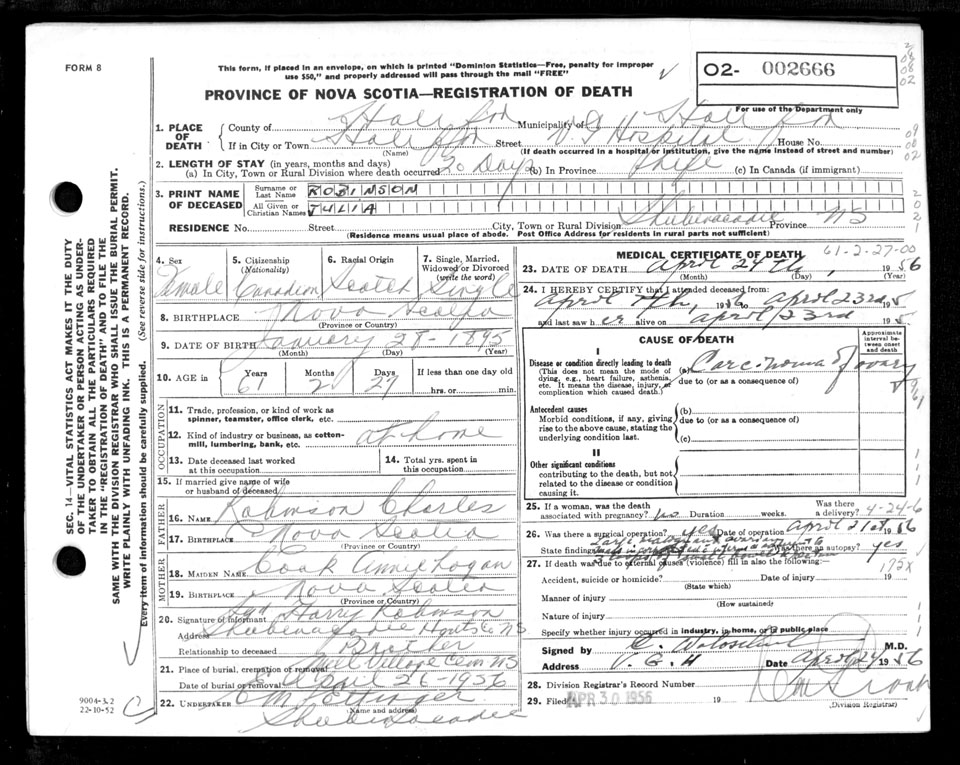 FORM 8
This form, if placed in an envelope, on which is printed "Dominion Statistics—Free, penalty for improper
use $50," and properly addressed will pass through the mail "FREE"
O2- 002666
For use of the Department only
PROVINCE OF NOVA SCOTIA—REGISTRATION OF DEATH
1. PLACE OF DEATH
County of Halifax Municipality of Halifax
If in City or Town Halifax Street V G Hospital House No.
(Name) (If death occurred in a hospital or institution, give the name instead of street and number)
2. LENGTH OF STAY (in years, months and days)
(a) In City, Town or Rural Division where death occurred 20 Days (b) In Province Life (c) In Canada (if immigrant)
3. PRINT NAME OF DECEASED
Surname or Last Name ROBINSON
All Given or Christian Names JULIA
RESIDENCE No. Street City, Town or Rural Division Shubenacadie Province NS
(Residence means usual place of abode. Post Office Address for residents in rural parts not sufficient)
4. Sex Female
5. Citizenship (Nationality) Canadian
6. Racial Origin Scotch
7. Single, Married, Widowed or Divorced (write the word) Single
8. BIRTHPLACE Nova Scotia
(Province or Country)
9. DATE OF BIRTH January 28 - 1895
(Month) (Day) (Year)
10. AGE in Years 61 Months 2 Days 27 If less than one day old
hrs. or min.
OCCUPATION
11. Trade, profession, or kind of work as
spinner, teamster, office clerk, etc.
12. Kind of industry or business, as cotton-
mill, lumbering, bank, etc. at home
13. Date deceased last worked
at this occupation
14. Total yrs. spent in
this occupation
15. If married give name of wife
or husband of deceased
FATHER
16. NAME Robinson Charles
17. BIRTHPLACE Nova Scotia
(Province or Country)
MOTHER
18. MAIDEN NAME Cook Annie Logan
19. BIRTHPLACE Nova Scotia
(Province or Country)
20. Signature of informant Sgd Harry Robinson
Address Shubenacadie Hants Co NS
Relationship to deceased Brother
21. Place of burial, cremation or removal Village Cem NS
Date of burial or removal April 26-1956
22. UNDERTAKER
(Name and address)
Shubenacadie
MEDICAL CERTIFICATE OF DEATH
61-2-27-00
23. DATE OF DEATH April 24th, 1956
(Month) (Day) (Year)
24. I HEREBY CERTIFY that I attended deceased from:
April 4th, 1956 to April 23rd 195
and last saw her alive on April 23rd 195
CAUSE OF DEATH
Approximate interval between onset and death
I
Disease or condition directly leading to death
(This does not mean the mode of
dying, e.g., heart failure, asthenia,
etc. It means the disease, injury, or
complication which caused death.)
(a) Carcinoma of ovary
due to (or as a consequence of)
Antecedent causes
Morbid conditions, if any, giving
rise to the above cause, stating the
underlying condition last.
(b)
due to (or as a consequence of)
(c)
II
Other significant conditions
contributing to the death, but not
related to the disease or condition
causing it.
25. If a woman, was the death
associated with pregnancy? no Duration weeks. Was there a delivery? 4-24-6
26. Was there a surgical operation? yes Date of operation April 21st 1956
State findings Was there an autopsy? yes
27. If death was due to external causes (violence) fill in also the following: 172X
Accident, suicide or homicide? Date of injury 19
(State which)
Manner of injury
(How sustained)
Nature of injury
Specify whether injury occurred in industry, in home, or in public place
Signed by M.D.
Address V. G. H Date April 24 1956
28. Division Registrar's Record Number
29. Filed APR 30 1956 19
(Division Registrar)
SEC. 14—VITAL STATISTICS ACT MAKES IT THE DUTY
OF THE UNDERTAKER OR PERSON ACTING AS UNDER-
TAKER TO OBTAIN ALL THE PARTICULARS REQUIRED
IN THE "REGISTRATION OF DEATH" AND TO FILE THE
SAME WITH THE DIVISION REGISTRAR WHO SHALL ISSUE THE BURIAL PERMIT.
WRITE PLAINLY WITH UNFADING INK. THIS IS A PERMANENT RECORD.
Every item of information should be carefully supplied. (See reverse side for instructions.)
9004-3.2
22-10-52